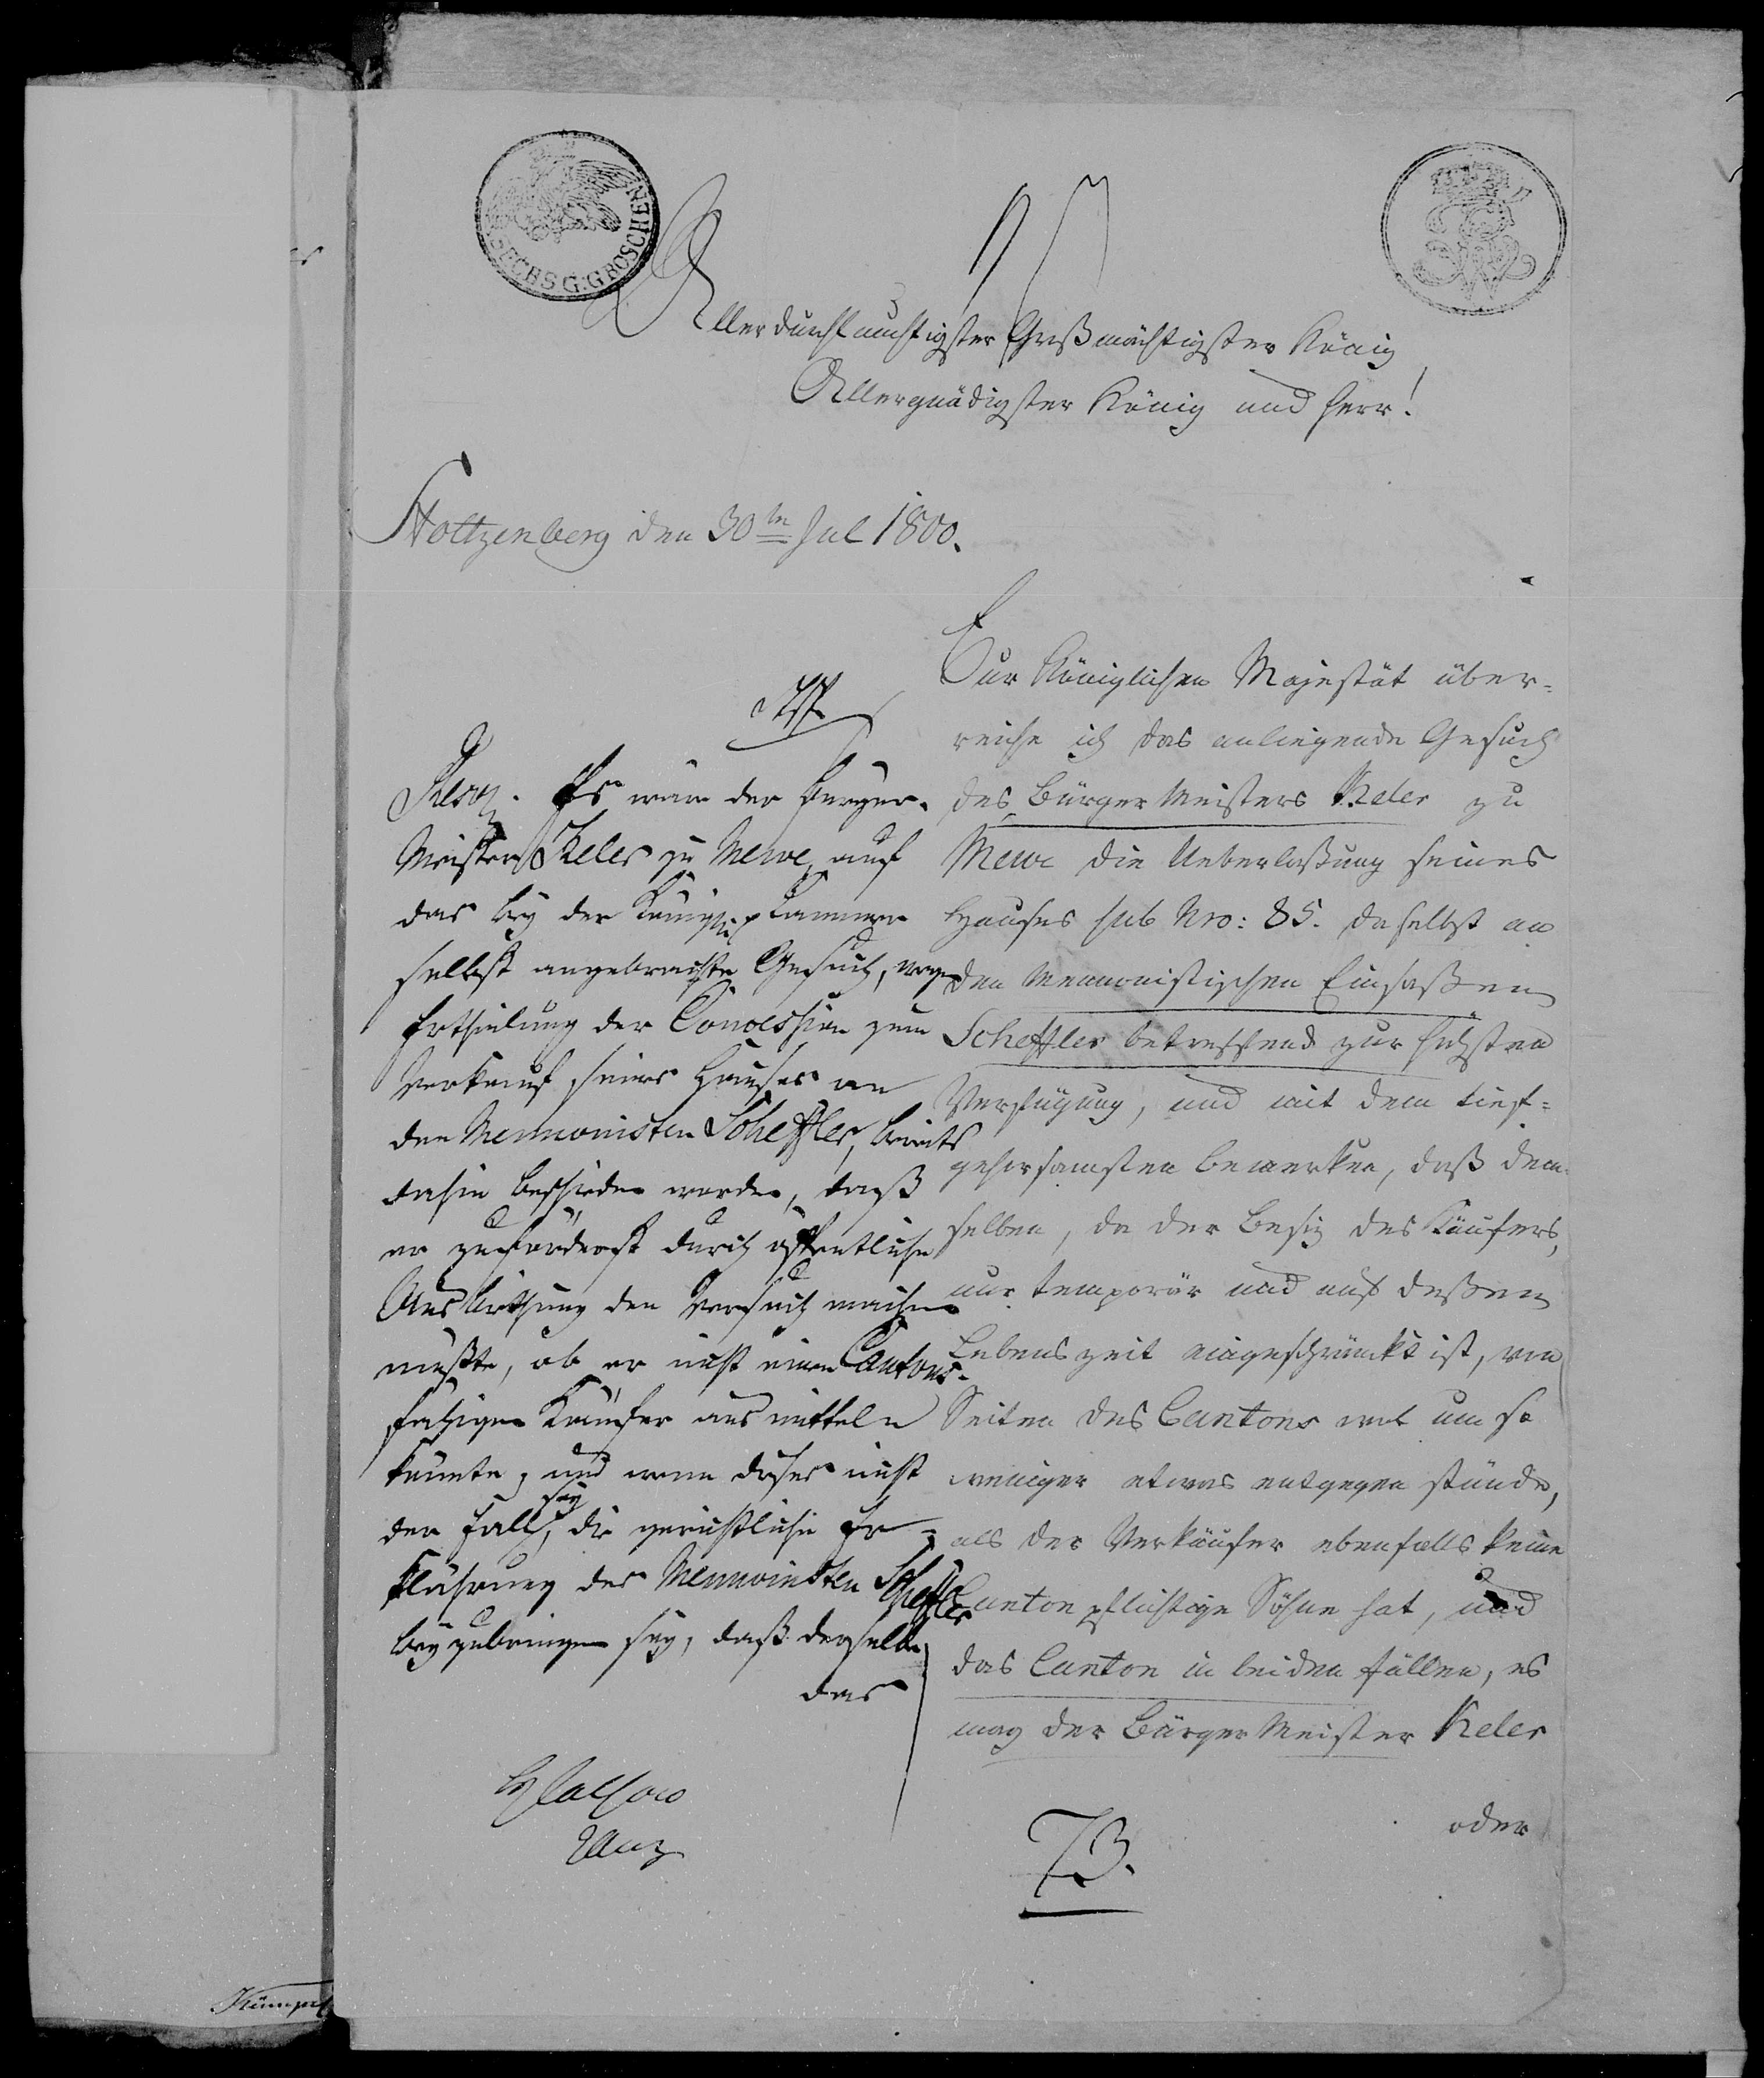 SECHS G: GROSCHEN
FWR
Allerdurchlauchtigster Großmächtigster König
Allergnädigster König und Herr!
Stoltzenberg den 30ten Jul 1800.
Eur Königlichen Majestät über-
reiche ich das anliegende Gesuch
des Bürger Meisters Keler zu
Mewe die Ueberlaßung seines
Hauses sub Nro: 85. daselbst an
den Mennonistischen Einsaßen
Scheffler betreffend zur höchsten
Verfügung, und mit dem tief-
gehorsamsten bemerken, daß dem-
selben, da der Besiz des Käufers,
nur temporär und auf deßen
Lebenszeit eingeschränkt ist, von
Seiten des Cantons wol um so
weniger etwas entgegen stünde,
als der Verkäufer ebenfalls keine
Canton pflichtige Söhne hat, und
das Canton in beiden fällen, es
mag der Bürger Meister Keler
oder
Resp. Es wäre der Burger-
Meister Keler zu Mewe auf
das bey der Königl. Cammer
selbst angebrachte Gesuch, wegen
Ertheilung der Concession zum
Verkauf seines Hauses an
den Mennonisten Scheffler, bereits
dahin beschieden worden, daß
er zuförderst durch öffentliche
Ausbiethung den Versuch machen
müßte, ob er nicht einen Cantons-
fähigen Käufer ausmitteln
könnte, und wenn dieses nicht
der Fall sey, die gerichtliche Er-
klährung des Mennonisten Scheffler
beyzubringen sey, daß derselbe
das
73.